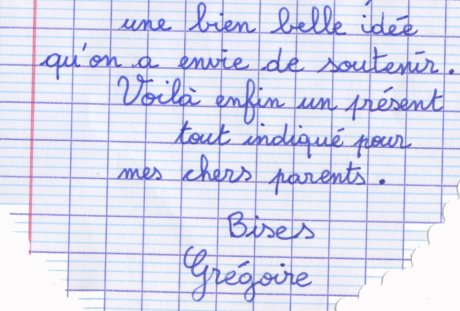 une bien belle idée
qu'on a envie de soutenir.
Voilà enfin un présent
tout indiqué pour
mes chers parents.
Bises
Grégoire